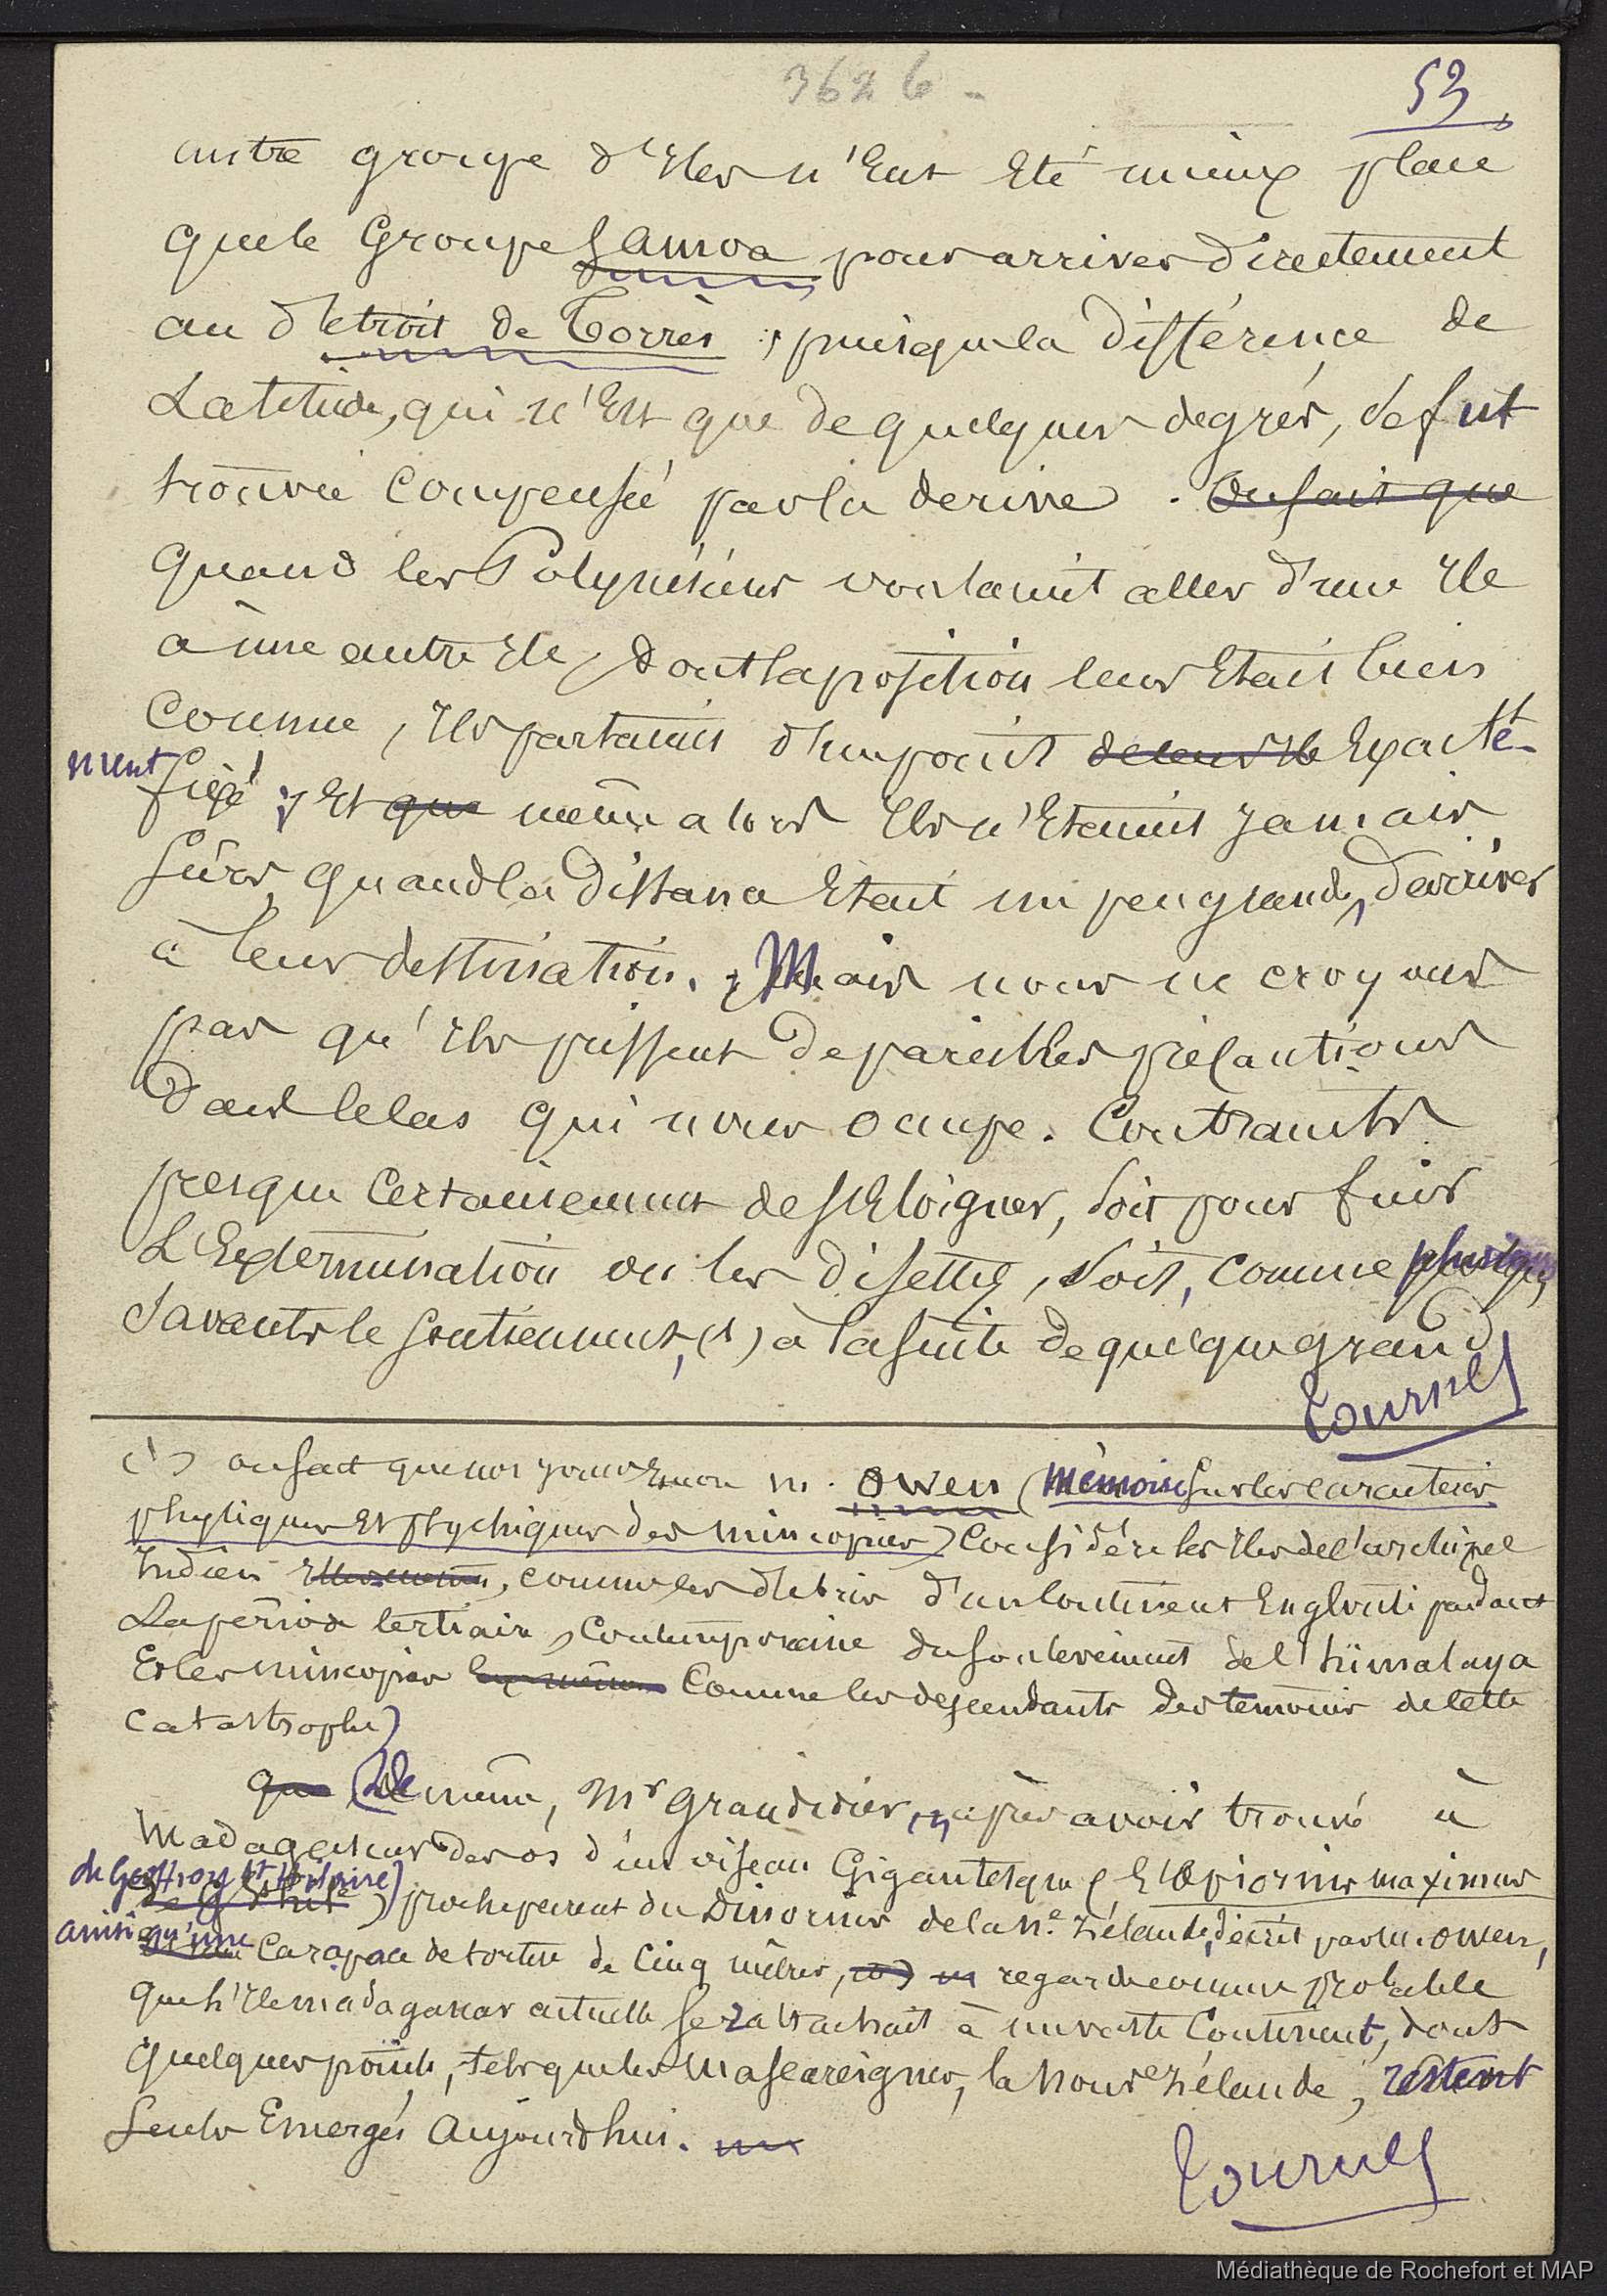 3626 -
53
autre groupe d'Iles n'Eut Eté mieux placé
que le Groupe Samoa pour arriver directement
au détroit de Torrès, puisque la différence de
Latitude, qui n'Est que de quelques degrés, se fut
trouvée compensée par la dérive. On sait que
quand les Polynésiens voulaient aller d'une Ile
à une autre Ile, dont la position leur Etait bien
connue, Ils partaient d'un point de leur Ile Exacte-
ment fixé ; Et que même alors Ils n'Etaient jamais
sûrs, quand la distance Etait un peu grande, d'arriver
à leur destination. Mais nous ne croyons
pas qu'Ils prissent de pareilles précautions
dans le cas qui nous occupe. Contraints
presque certainement de s'Eloigner, soit pour fuir
L'Extermination ou les disettes, soit, comme plusieurs
savants le soutiennent, (1) à la suite de quelque grand
Tournez
(1) on sait que M. Owen (Mémoire sur les caractères
physiques Et psychiques des mincopies) considère les Iles de l'archipel
Indien, comme les débris d'un continent Englouti pendant
La période tertiaire, contemporaine du soulèvement de l'himalaya
Et les mincopies eux-mêmes comme les descendants des témoins de cette
catastrophe)
que (de même, Mr Grandidier, après avoir trouvé à
Madagascar des os d'un oiseau Gigantesque, l'Epiornis maximus
de Geoffroy St hilaire) proche parent du Dinornis de la Nle Zélande, décrit par M. Owen,
ainsi qu'une Carapace de tortue de Cinq mètres, regarde comme probable
que l'Ile madagascar actuelle se rattachait à un vaste Continent, dont
quelques points, tels que les Mascareignes, la Nouvle Zélande, restent
seuls Emergés Aujourd'hui.
Tournez
Médiathèque de Rochefort et MAP